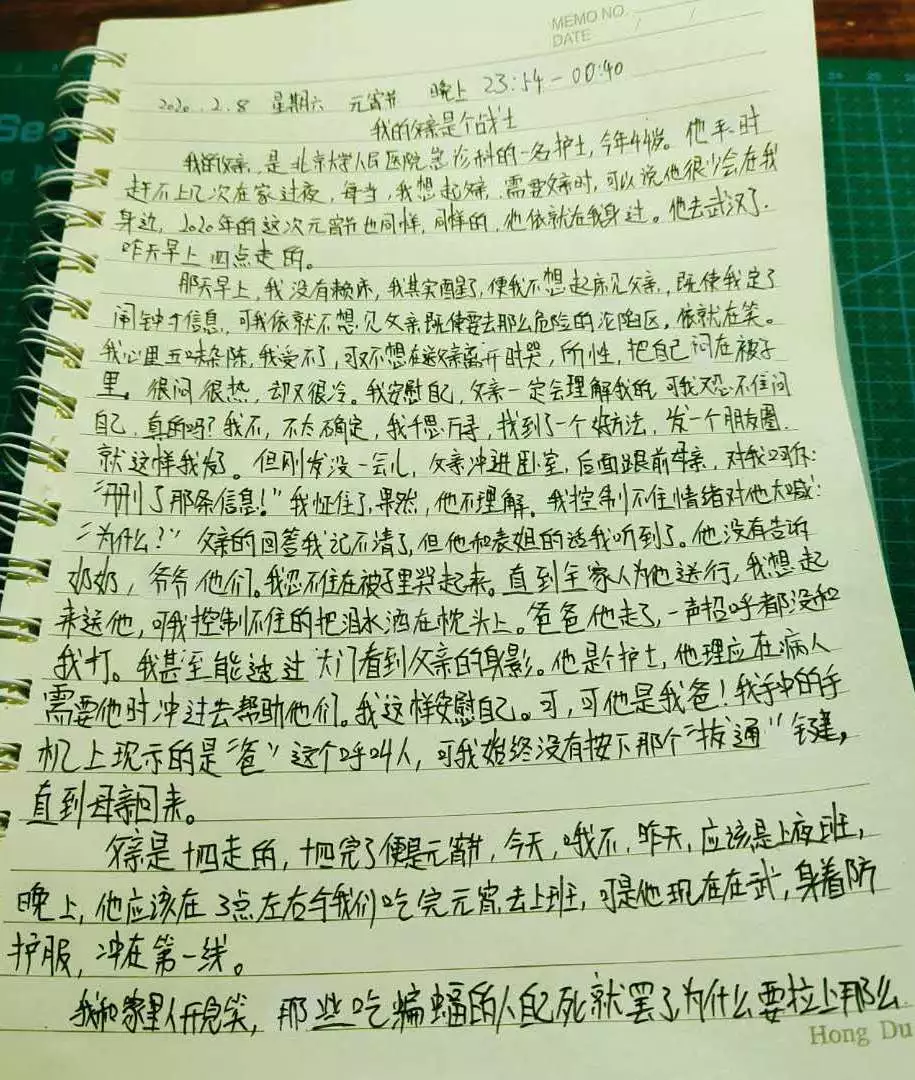 MEMO NO.
DATE / /
2020.2.8 星期六 元宵节 晚上 23:54-00:40
我的父亲是个战士
我的父亲,是北京大学人民医院急诊科的一名护士,今年44岁。他平时
赶不上几次在家过夜,每当,我想起父亲,需要父亲时,可以说他很少会在我
身边,2020年的这次元宵节也同样,同样的,他依就在我身边。他去武汉了.
昨天早上四点走的。
那天早上,我没有赖床,我其实醒了,便我不想起床见父亲,既使我定了
闹钟于信息,可我依就不想见父亲既使要去那么危险的沦陷区,依就在笑。
我心里五味杂陈,我受不了,可又不想在父亲离开时哭,所性,把自己闷在被子
里。很闷很热,却又很冷。我安慰自己,父亲一定会理解我的,可我又忍不住问
自己,真的吗?我不,不太确定,我千思万寻,找到了一个好方法,发一个朋友圈.
就这样我发了。但刚发没一会儿,父亲冲进卧室,后面跟前母亲,对我叫你:
“删了那条信息!”我怔住了,果然,他不理解。我控制不住情绪对他大喊:
“为什么?”父亲的回答我记不清了,但他和表姐的话我听到了。他没有告诉
奶奶,爷爷他们。我忍不住在被子里哭起来。直到全家人为他送行,我想起
来送他,可我控制不住的把泪水洒在枕头上。爸爸他走了,一声招呼都没和
我打。我甚至能透过大门看到父亲的身影。他是个护士,他理应在病人
需要他时冲过去帮助他们。我这样安慰自己。可,可他是我爸!我手中的手
机上现示的是“爸”这个呼叫人,可我始终没有按下那个“拨通”键,
直到母亲回来。
父亲是十四走的,十四完了便是元宵节,今天,哦不,昨天,应该是上夜班,
晚上,他应该在3点左右与我们吃完元宵去上班,可是他现在在武,身着防
护服,冲在第一线。
我和家里人开玩笑,那些吃蝙蝠的人自己死就罢了为什么要拉上那么
Hong Du